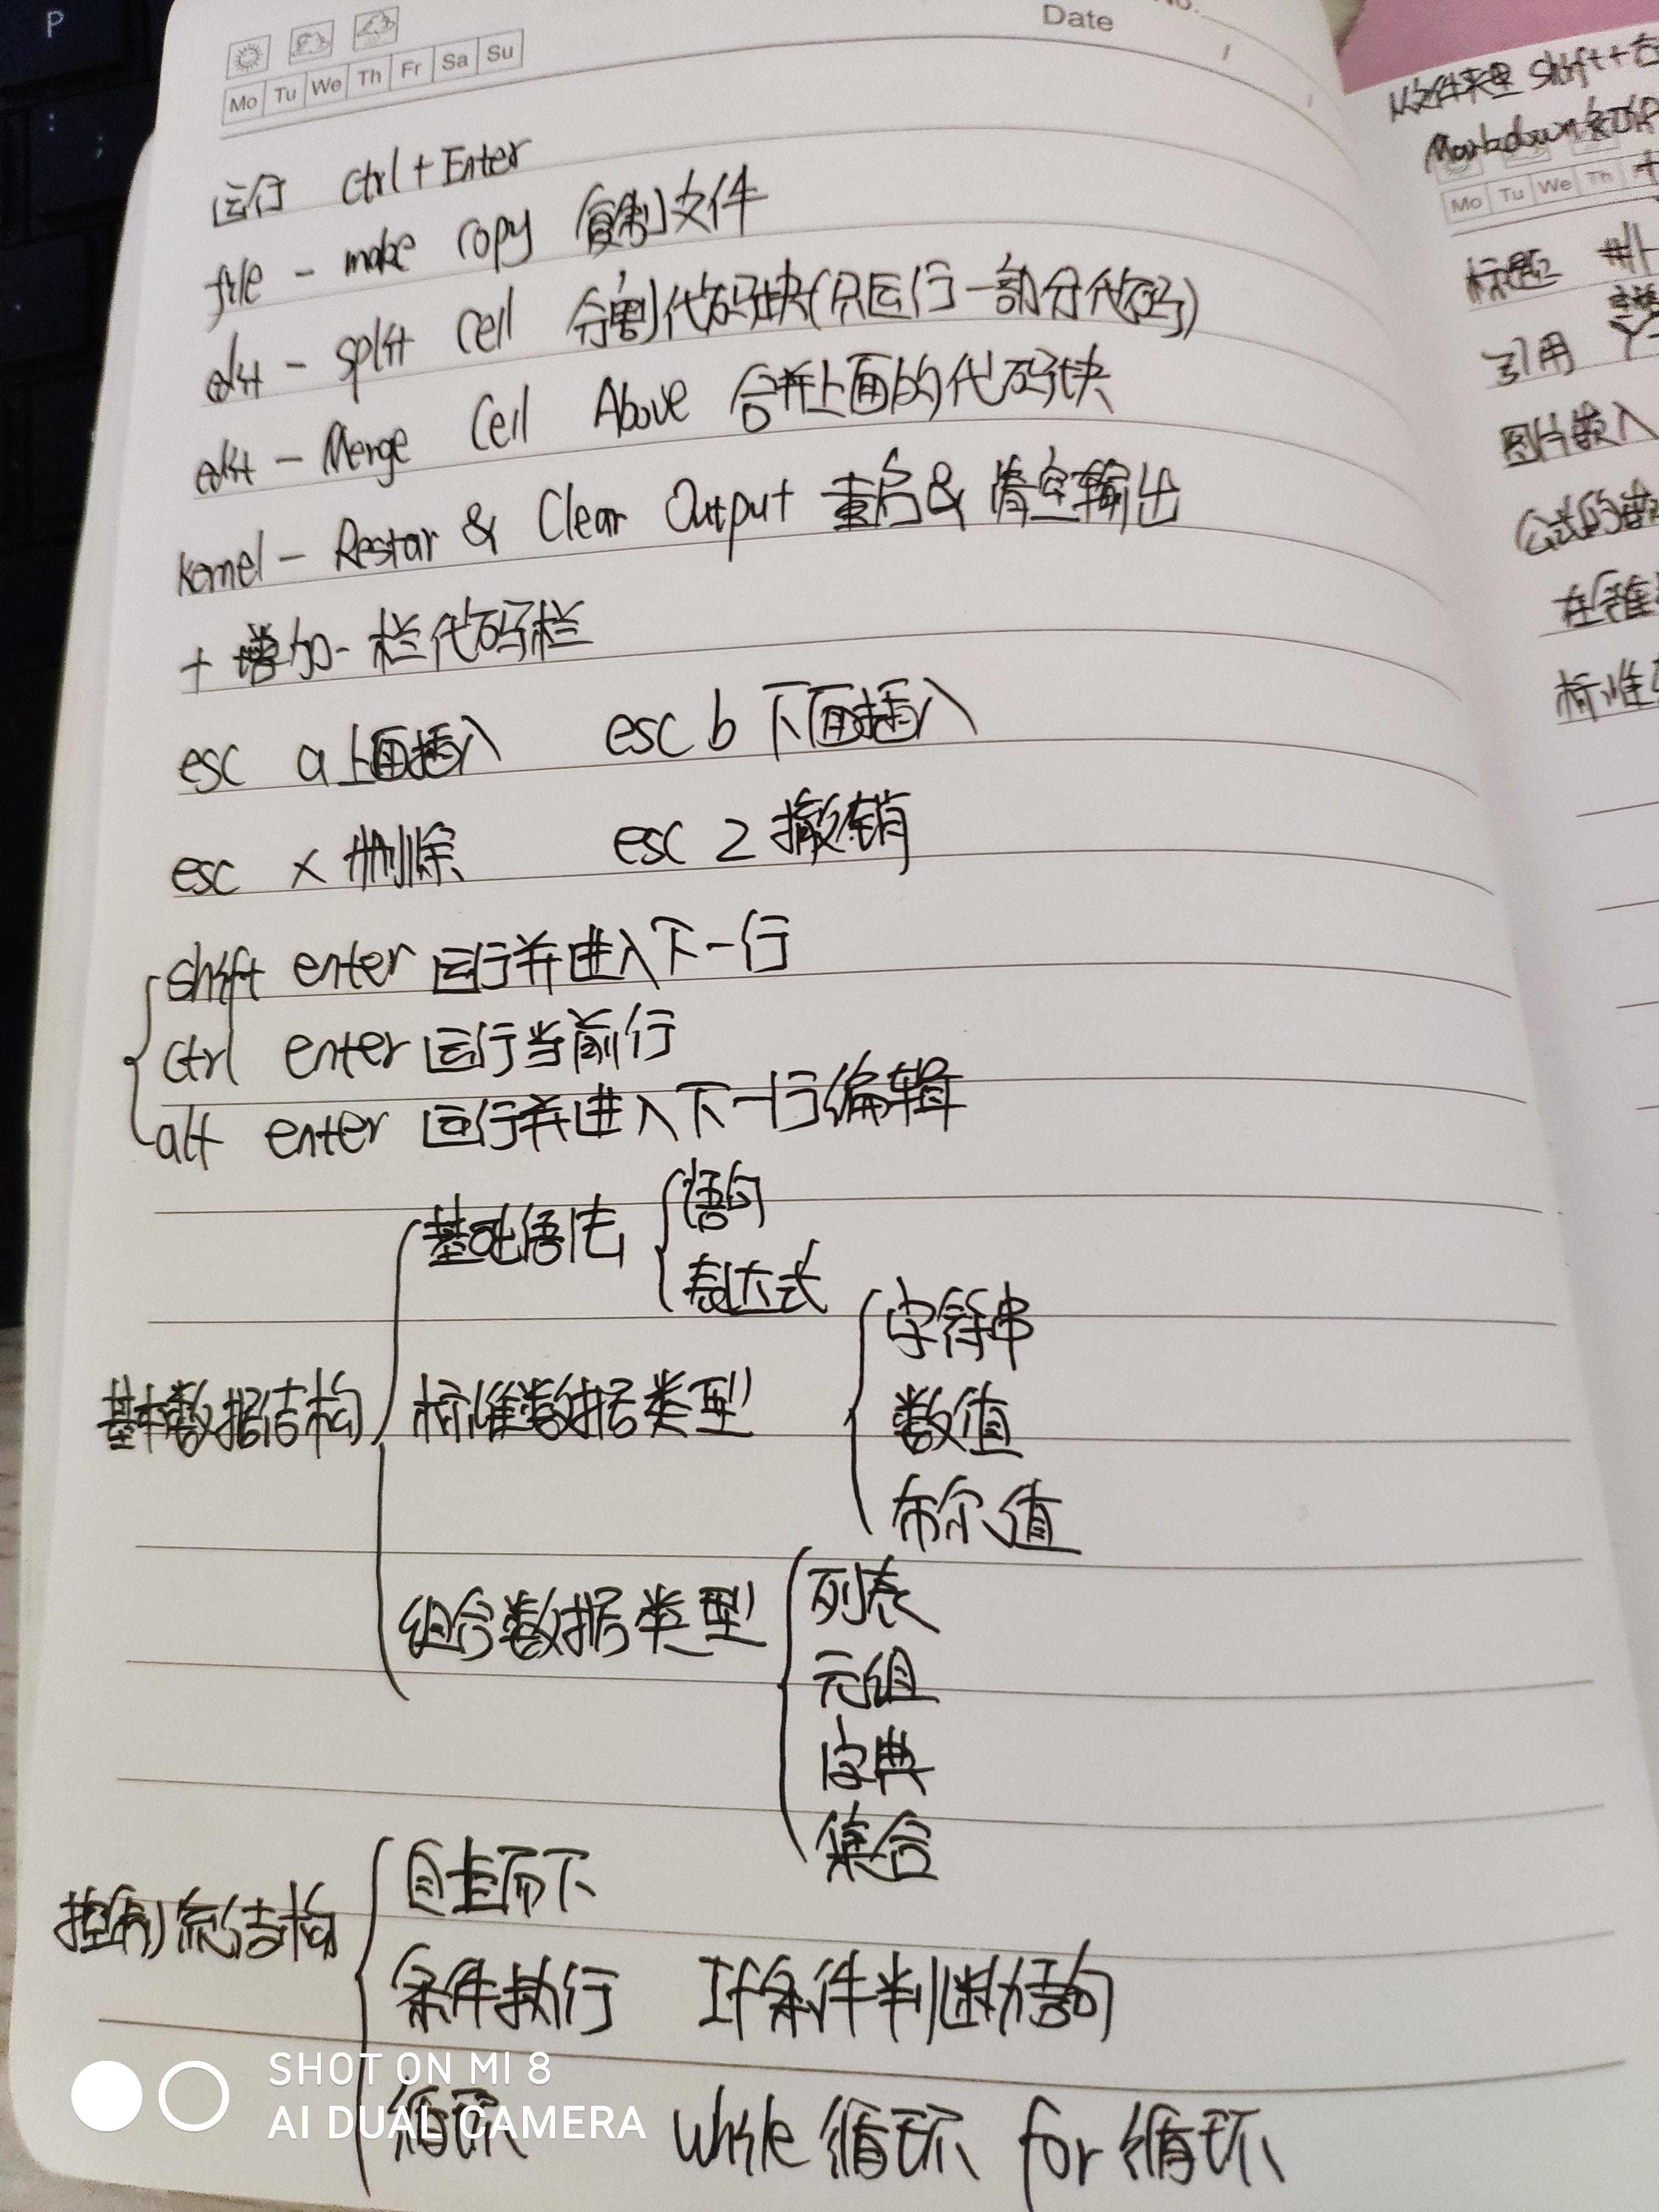 P
No.
Date
Mo Tu We Th Fr Sa Su
运行 Ctrl+Enter
file - make copy 复制文件
edit - split Cell 分割代码块(只运行一部分代码)
edit - Merge Cell Above 合并上面的代码块
kernel - Restar & Clear Output 重启 & 清空输出
+ 增加一栏代码栏
esc a 上面插入 esc b 下面插入
esc x 删除 esc z 撤销
shift enter 运行并进入下一行
Ctrl enter 运行当前行
alt enter 运行并进入下一行编辑
基础语法 语句
表达式
基本数据结构 标准数据类型 字符串
数值
布尔值
组合数据类型 列表
元组
字典
集合
控制流结构 自上而下
条件执行 If条件判断语句
循环 While 循环 for 循环
SHOT ON MI 8
AI DUAL CAMERA
文件夹里 Shift+右
Markdown
Mo Tu We Th
标题 #
引用
图片嵌入
公式的
标准